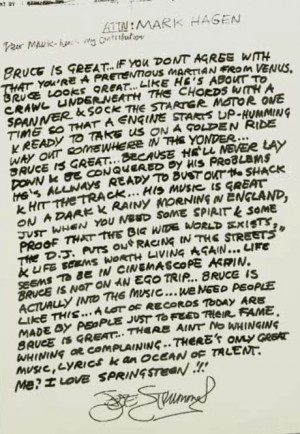 ATTN: MARK HAGEN
Dear MARK - here's my contribution
BRUCE IS GREAT.. IF YOU DONT AGREE WITH
THAT YOU'RE A PRETENTIOUS MARTIAN FROM VENUS.
BRUCE LOOKS GREAT... LIKE HE'S ABOUT TO
CRAWL UNDERNEATH THE CHORDS WITH A
SPANNER & SOCK THE STARTER MOTOR ONE
TIME SO THAT A ENGINE STARTS UP - HUMMING
& READY TO TAKE US ON A GOLDEN RIDE
WAY OUT SOMEWHERE IN THE YONDER...
BRUCE IS GREAT... BECAUSE HE'LL NEVER LAY
DOWN & BE CONQUERED BY HIS PROBLEMS
HE'S ALLWAYS READY TO BUST OUT THE SHACK
& HIT THE TRACK... HIS MUSIC IS GREAT
ON A DARK & RAINY MORNING IN ENGLAND,
JUST WHEN YOU NEED SOME SPIRIT & SOME
PROOF THAT THE BIG WIDE WORLD EXISTS,
THE D.J. PUTS ON "RACING IN THE STREETS"
& LIFE SEEMS WORTH LIVING AGAIN... LIFE
SEEMS TO BE IN CINEMASCOPE AGAIN.
BRUCE IS NOT ON AN EGO TRIP... BRUCE IS
ACTUALLY INTO THE MUSIC... WE NEED PEOPLE
LIKE THIS... A LOT OF RECORDS TODAY ARE
MADE BY PEOPLE JUST TO FEED THEIR FAME.
BRUCE IS GREAT... THERE AINT NO WHINGING
WHINING OR COMPLAINING.. THERE'S ONLY GREAT
MUSIC, LYRICS & AN OCEAN OF TALENT.
ME? I LOVE SPRINGSTEEN!!
Joe Strummer